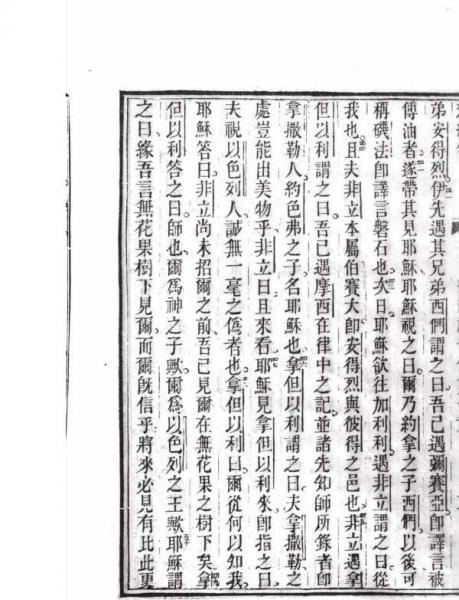 弟安得烈伊先遇其兄弟西們謂之曰吾已遇彌賽亞即譯言被
傅油者遂帶其見耶穌耶穌視之曰爾乃約拿之子西們以後可
稱磯法即譯言磐石也次日耶穌欲往加利利遇非立謂之曰從
我也且夫非立本屬伯賽大即安得烈與彼得之邑也非立遇拿
但以利謂之曰吾已遇摩西在律中之記並諸先知師所錄者即
拿撒勒人約色弗之子名耶穌也拿但以利謂之曰夫拿撒勒之
處豈能出美物乎非立曰且來看耶穌見拿但以利來即指之曰
夫視以色列人誠無一毫之僞者也拿但以利曰爾從何以知我
耶穌答曰非立尚未招爾之前吾已見爾在無花果之樹下矣拿
但以利答之曰師也爾爲神之子歟爾爲以色列之王歟耶穌謂
之曰緣吾言無花果樹下見爾而爾既信乎將來必見有比此更